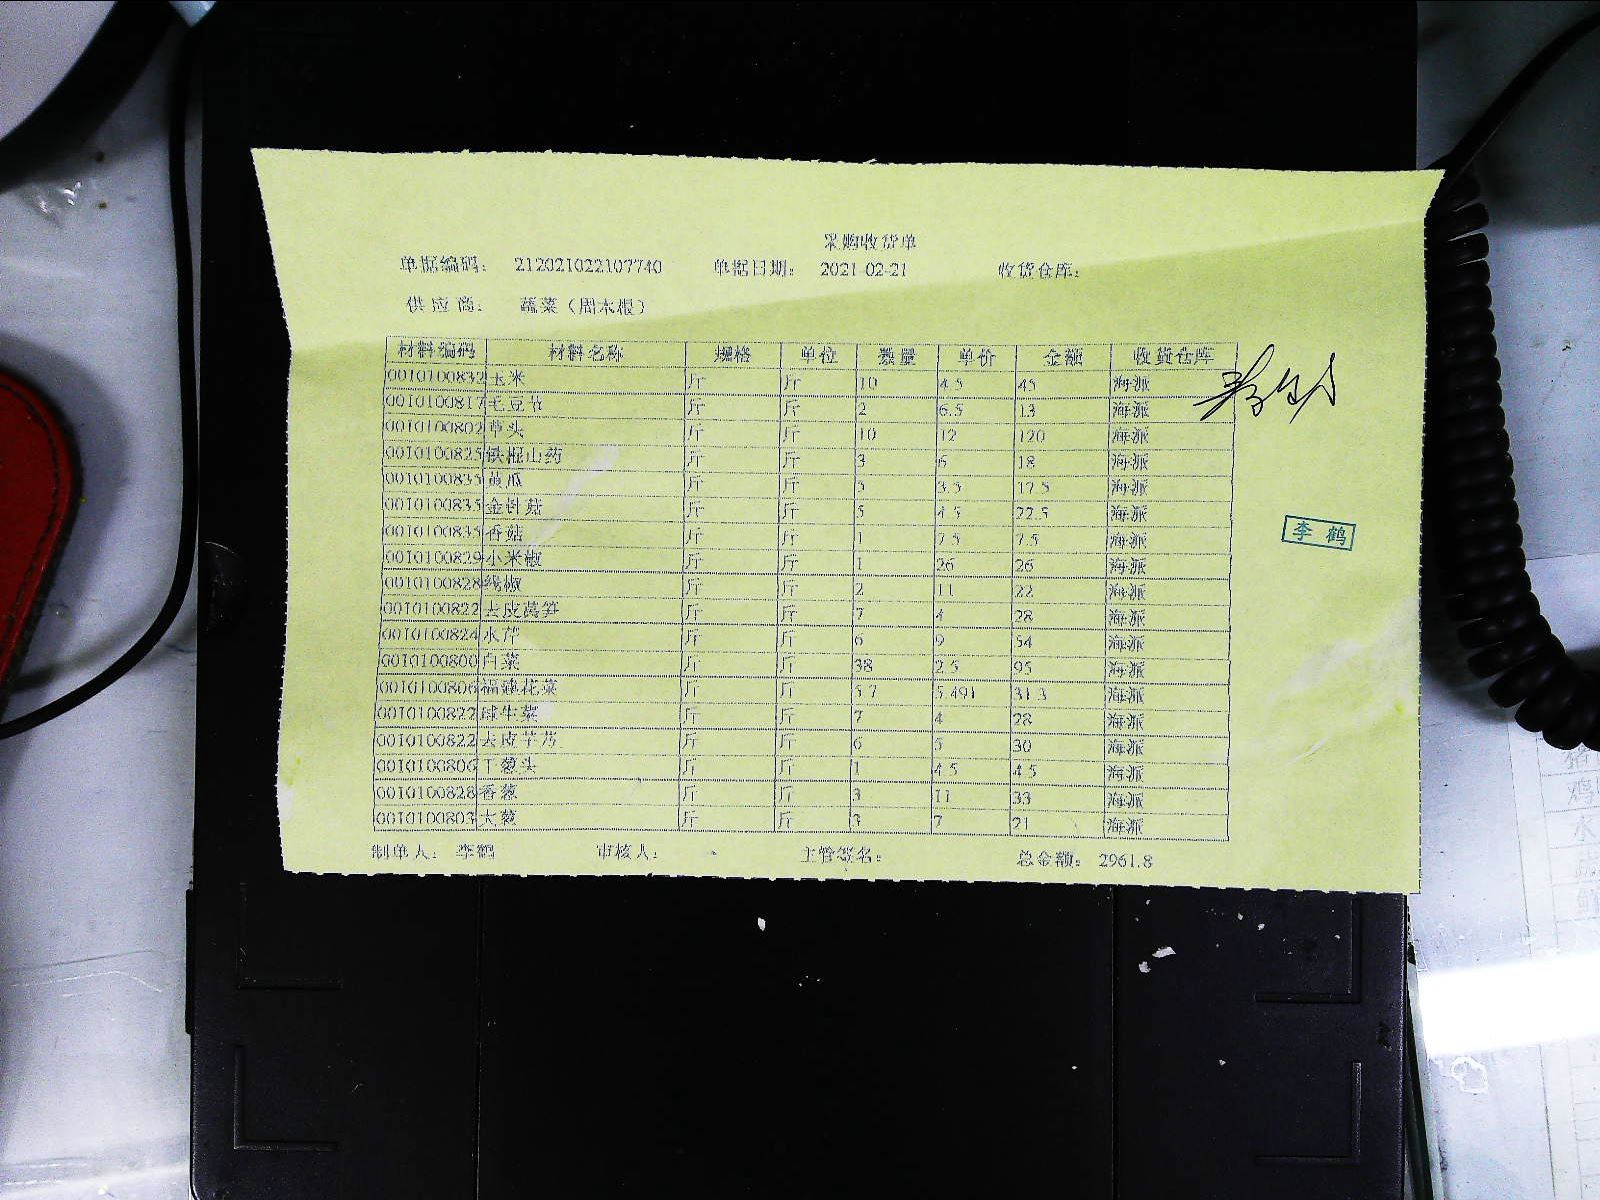 采购收货单
单据编码: 212021022107740 单据日期: 2021-02-21 收货仓库:
供应商: 蔬菜（周木根）
材料编码 材料名称 规格 单位 数量 单价 金额 收货仓库
0010100832 玉米 斤 斤 10 4.5 45 海派
0010100817 毛豆节 斤 斤 2 6.5 13 海派
0010100802 草头 斤 斤 10 12 120 海派
0010100825 铁棍山药 斤 斤 3 6 18 海派
0010100835 黄瓜 斤 斤 5 3.5 17.5 海派
0010100835 金针菇 斤 斤 5 4.5 22.5 海派
0010100835 香菇 斤 斤 1 7.5 7.5 海派
0010100829 小米椒 斤 斤 1 26 26 海派
0010100828 线椒 斤 斤 2 11 22 海派
0010100822 去皮莴笋 斤 斤 7 4 28 海派
0010100824 水芹 斤 斤 6 9 54 海派
0010100800 白菜 斤 斤 38 2.5 95 海派
0010100806 福建花菜 斤 斤 5.7 5.491 31.3 海派
0010100822 球生菜 斤 斤 7 4 28 海派
0010100822 去皮芋艿 斤 斤 6 5 30 海派
0010100806 干葱头 斤 斤 1 4.5 4.5 海派
0010100828 香葱 斤 斤 3 11 33 海派
0010100803 大葱 斤 斤 3 7 21 海派
李鹤
制单人: 李鹤 审核人: 主管签名: 总金额: 2961.8